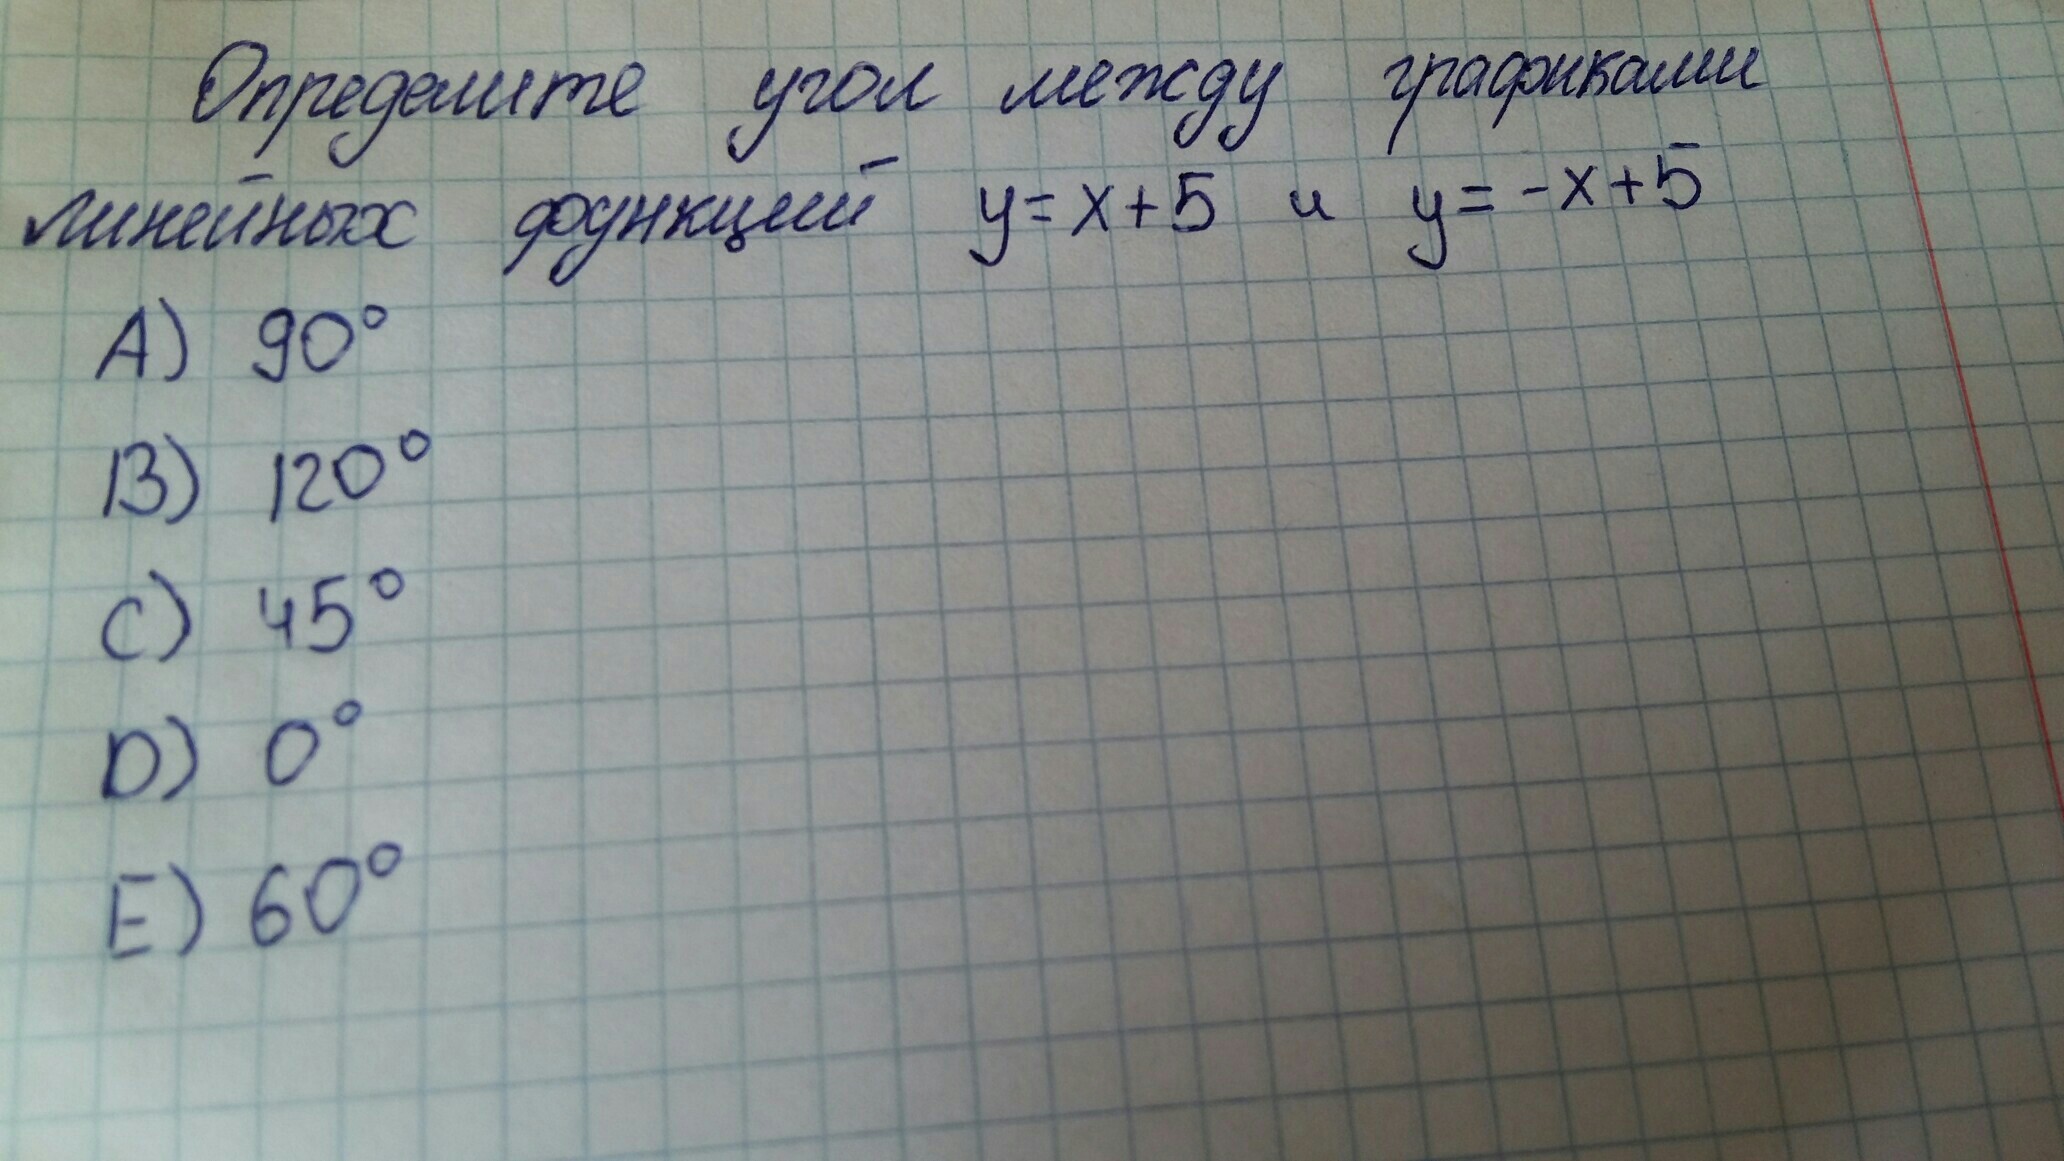 Определите угол между графиками
линейных функций y=x+5 и y=-x+5
A) 90°
B) 120°
C) 45°
D) 0°
E) 60°